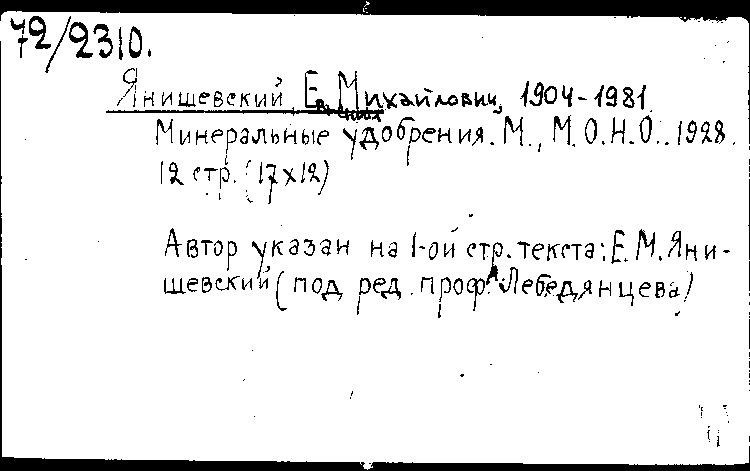 72/2310.
Янишевский, Е. Михайлович, 1904-1981.
Минеральные удобрения. М., М.О.Н.О.. 1928.
12 стр. (17х12)
Автор указан на 1-ой стр. текста: Е.М. Яни-
шевский (под ред. проф. А. Лебедянцева)